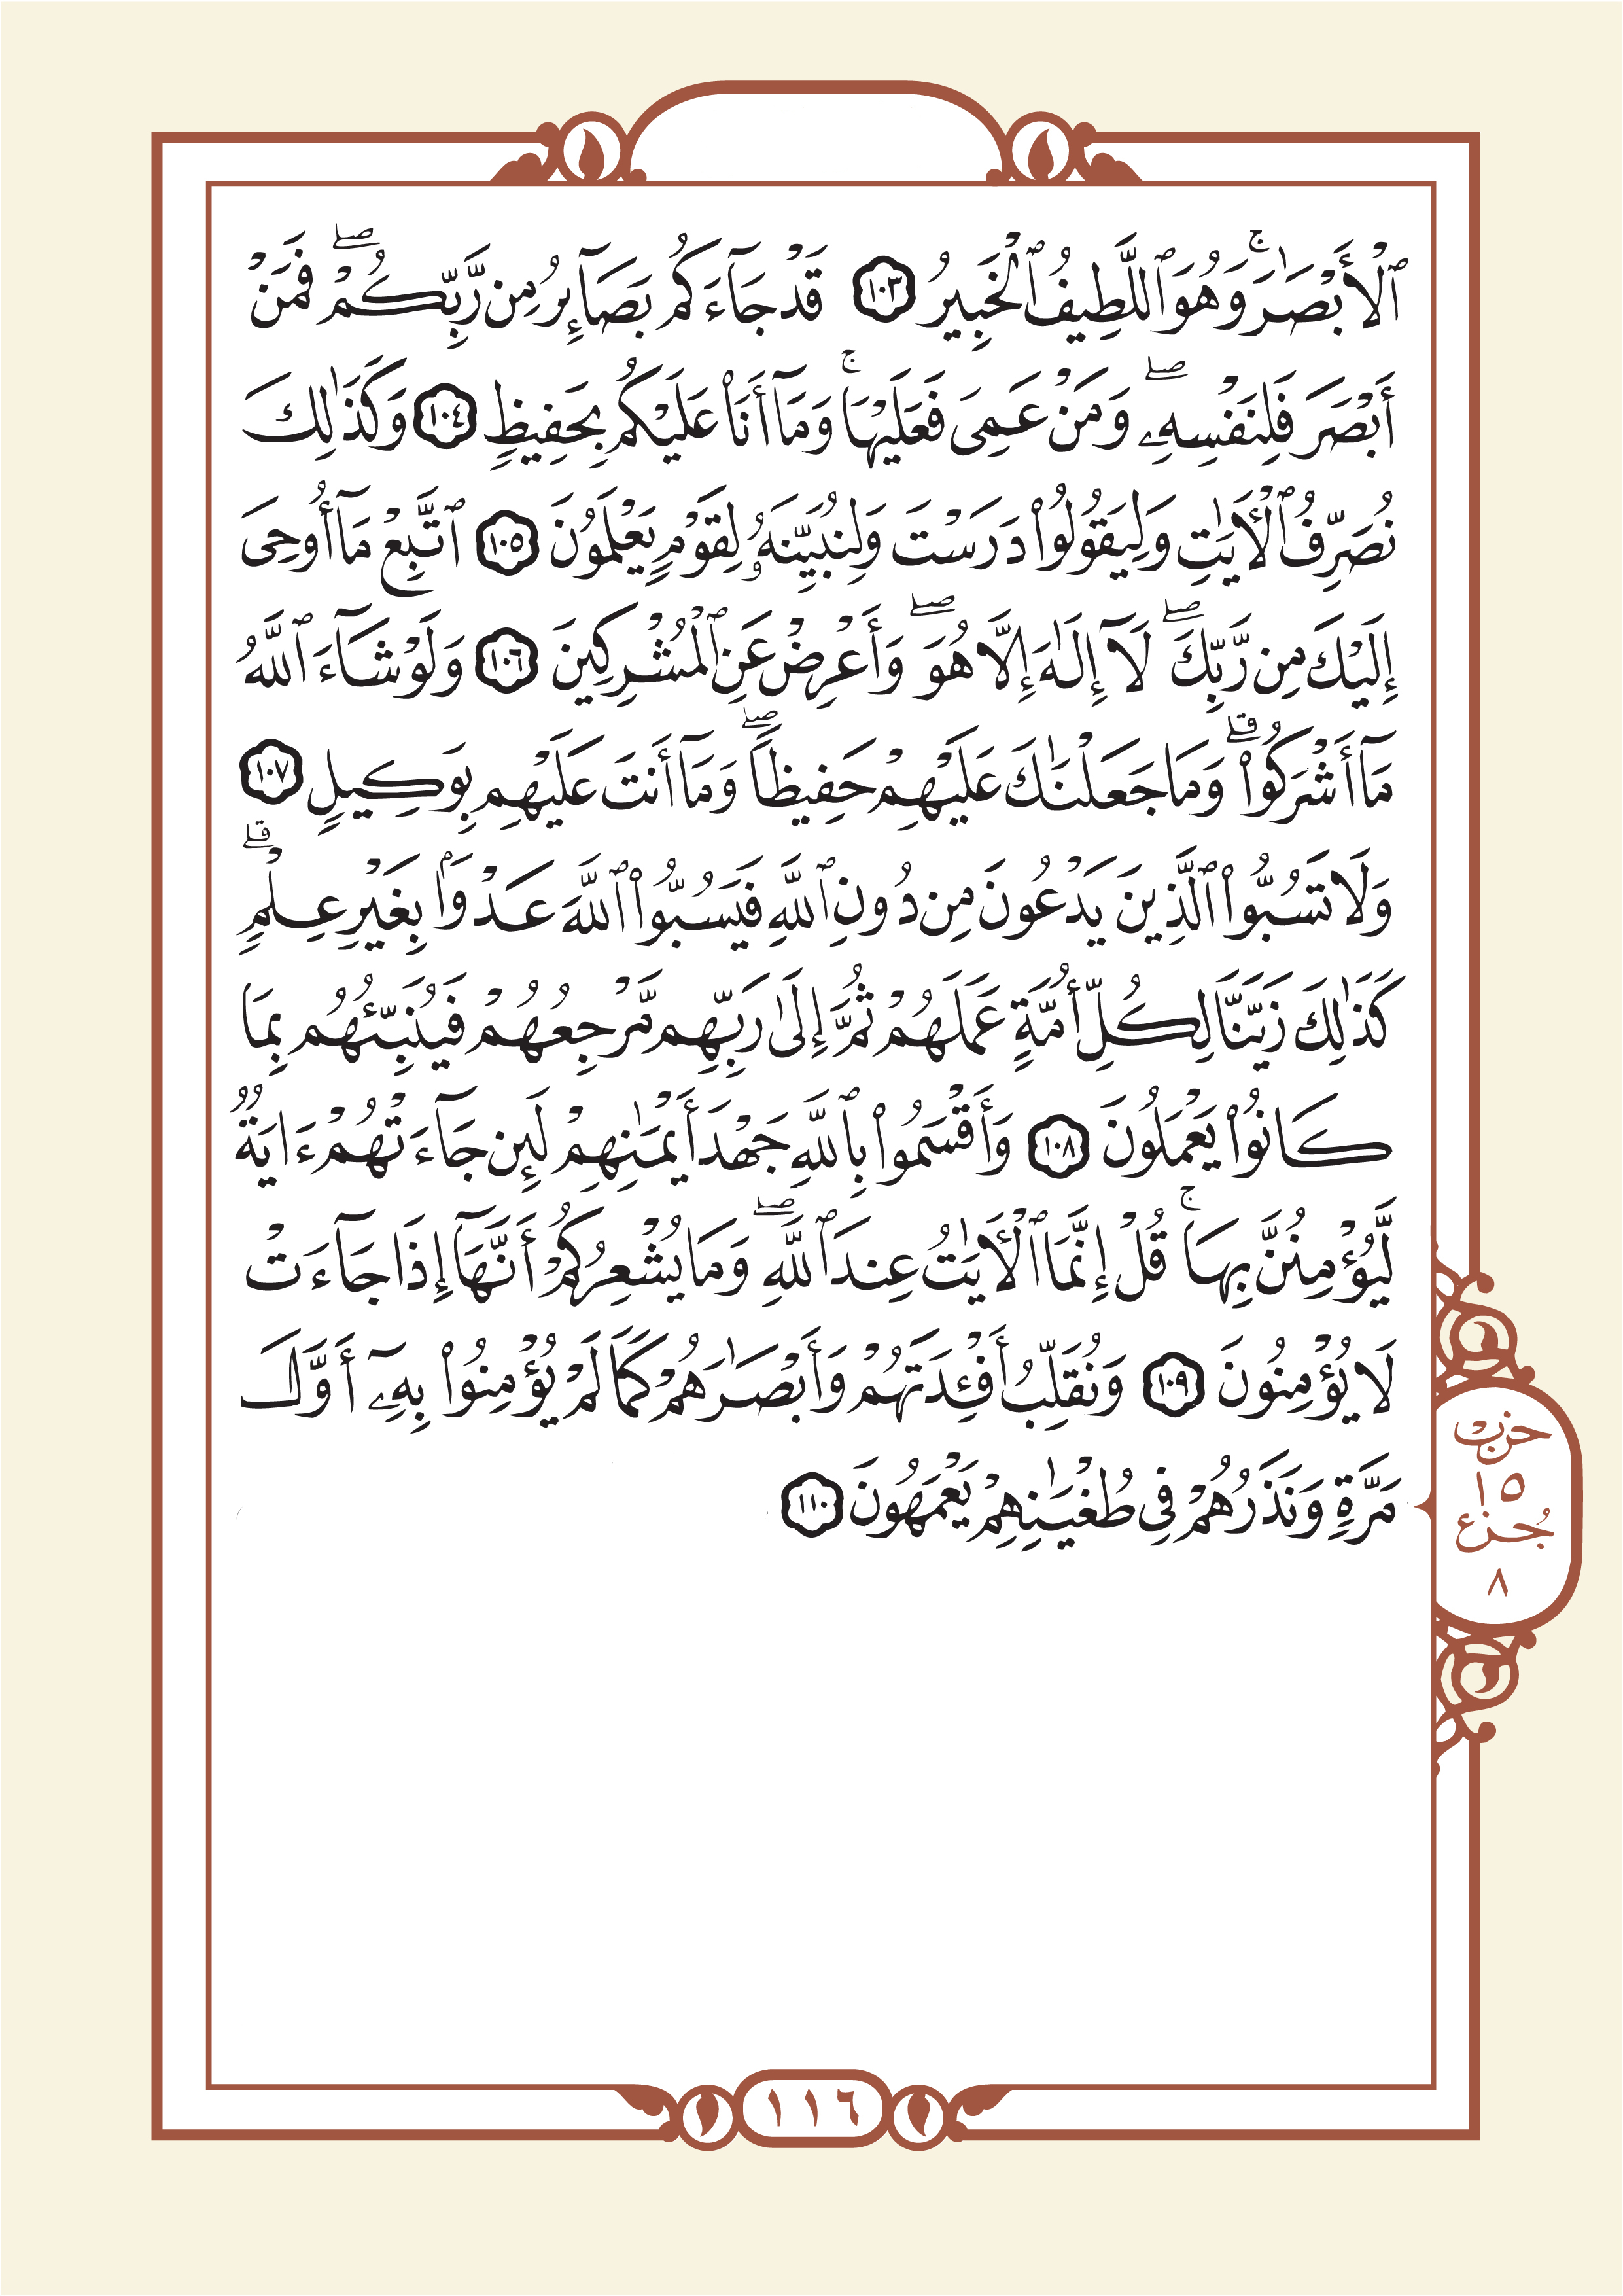 ٱلْأَبْصَٰرَۚ وَهُوَ ٱللَّطِيفُ ٱلْخَبِيرُ ١٠٣ قَدْ جَآءَكُم بَصَآئِرُ مِن رَّبِّكُمْۖ فَمَنْ
أَبْصَرَ فَلِنَفْسِهِۦۖ وَمَنْ عَمِىَ فَعَلَيْهَاۚ وَمَآ أَنَا۠ عَلَيْكُم بِحَفِيظٍ ١٠٤ وَكَذَٰلِكَ
نُصَرِّفُ ٱلْأَيَٰتِ وَلِيَقُولُوا۟ دَرَسْتَ وَلِنُبَيِّنَهُۥ لِقَوْمٍ يَعْلَمُونَ ١٠٥ ٱتَّبِعْ مَآ أُوحِىَ
إِلَيْكَ مِن رَّبِّكَۖ لَآ إِلَٰهَ إِلَّا هُوَۖ وَأَعْرِضْ عَنِ ٱلْمُشْرِكِينَ ١٠٦ وَلَوْ شَآءَ ٱللَّهُ
مَآ أَشْرَكُوا۟ۗ وَمَا جَعَلْنَٰكَ عَلَيْهِمْ حَفِيظًاۖ وَمَآ أَنتَ عَلَيْهِم بِوَكِيلٍ ١٠٧
وَلَا تَسُبُّوا۟ ٱلَّذِينَ يَدْعُونَ مِن دُونِ ٱللَّهِ فَيَسُبُّوا۟ ٱللَّهَ عَدْوَۢا بِغَيْرِ عِلْمٍۗ
كَذَٰلِكَ زَيَّنَّا لِكُلِّ أُمَّةٍ عَمَلَهُمْ ثُمَّ إِلَىٰ رَبِّهِم مَّرْجِعُهُمْ فَيُنَبِّئُهُم بِمَا
كَانُوا۟ يَعْمَلُونَ ١٠٨ وَأَقْسَمُوا۟ بِٱللَّهِ جَهْدَ أَيْمَٰنِهِمْ لَئِن جَآءَتْهُمْ ءَايَةٌ
لَّيُؤْمِنُنَّ بِهَاۚ قُلْ إِنَّمَا ٱلْأَيَٰتُ عِندَ ٱللَّهِۖ وَمَا يُشْعِرُكُمْ أَنَّهَآ إِذَا جَآءَتْ
لَا يُؤْمِنُونَ ١٠٩ وَنُقَلِّبُ أَفْـِٔدَتَهُمْ وَأَبْصَٰرَهُمْ كَمَا لَمْ يُؤْمِنُوا۟ بِهِۦٓ أَوَّلَ
مَرَّةٍ وَنَذَرُهُمْ فِى طُغْيَٰنِهِمْ يَعْمَهُونَ ١١٠
حزب
١٥
جُزء
٨
١١٦